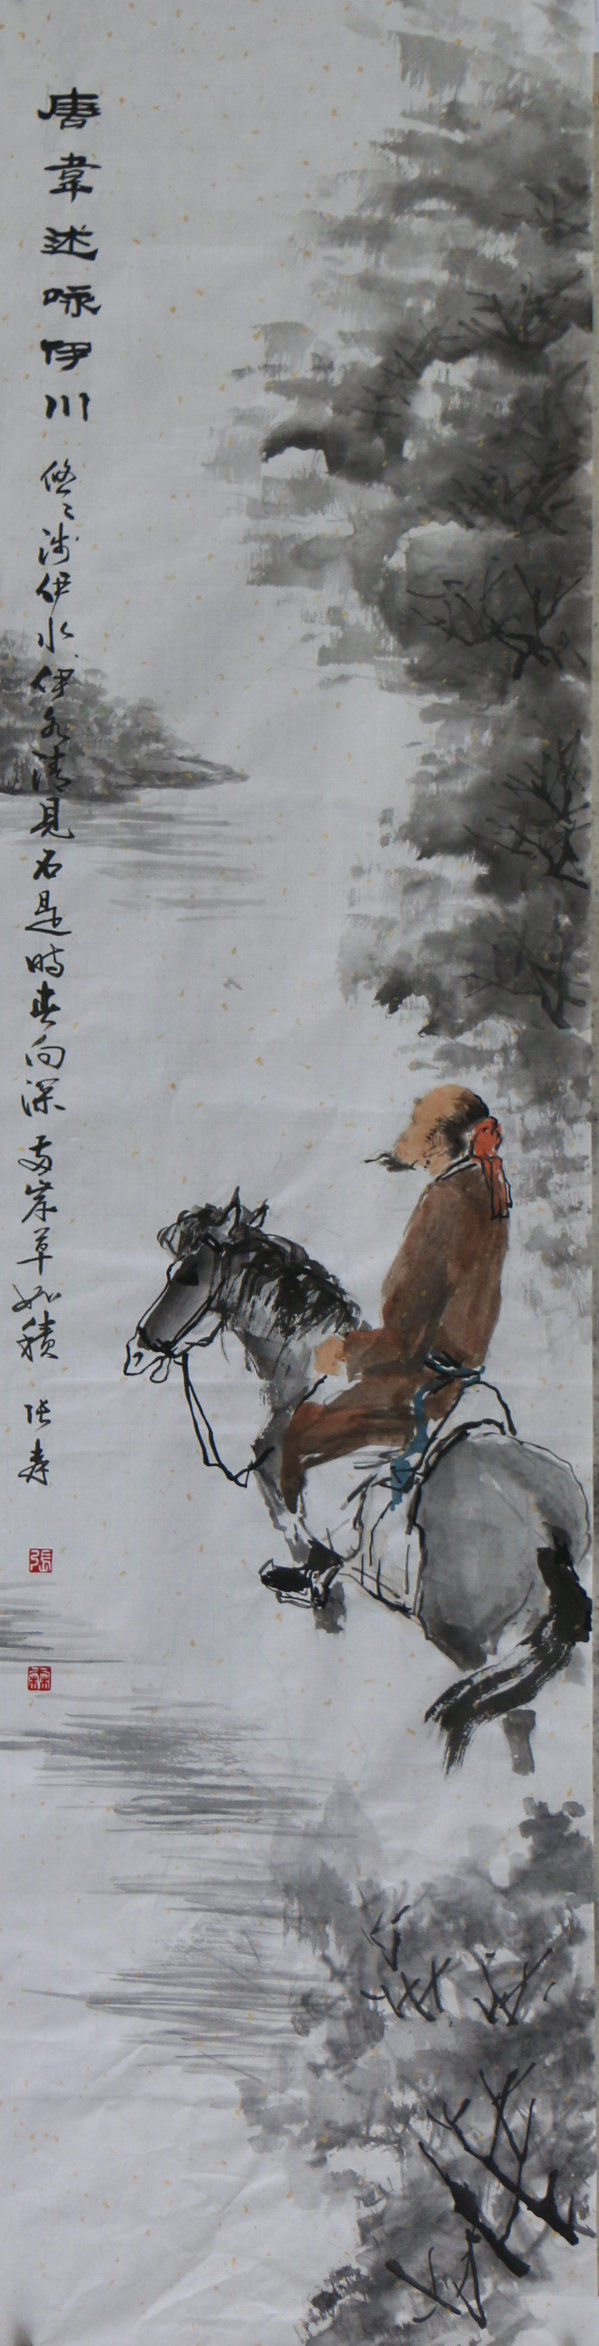 唐韋述咏伊川 悠〻涉伊水伊水清見石是時春向深兩岸草如積 张寿
張